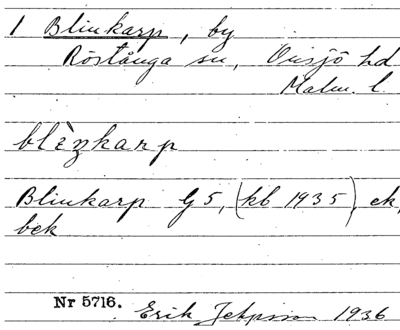 1 Blinkarp, by
Röstånga sn, Onsjö hd
Malm. l.
blèŋkarp
Blinkarp G 5, (kb 1935), ek,
bek
Nr 5716. Erik Jeppsson 1936